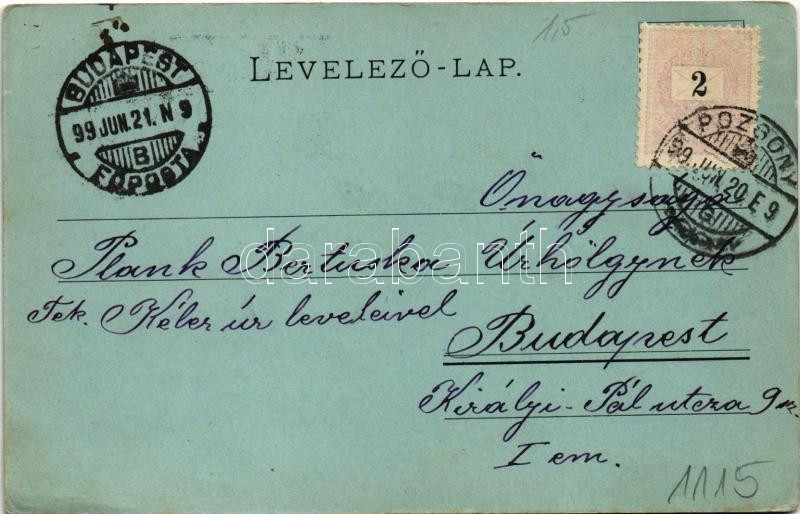 1,5
LEVELEZŐ-LAP.
2
BUDAPEST
99 JUN. 21. N 9
B
FŐPOSTA
POZSONY
99. JUN. 20. E 9
G
Őnagysága
Plank Bertuska Úrhölgynek
Tek. Kéler úr leveleivel
Budapest
Királyi-Pál utcza 9 sz.
I em.
1115
darabanth